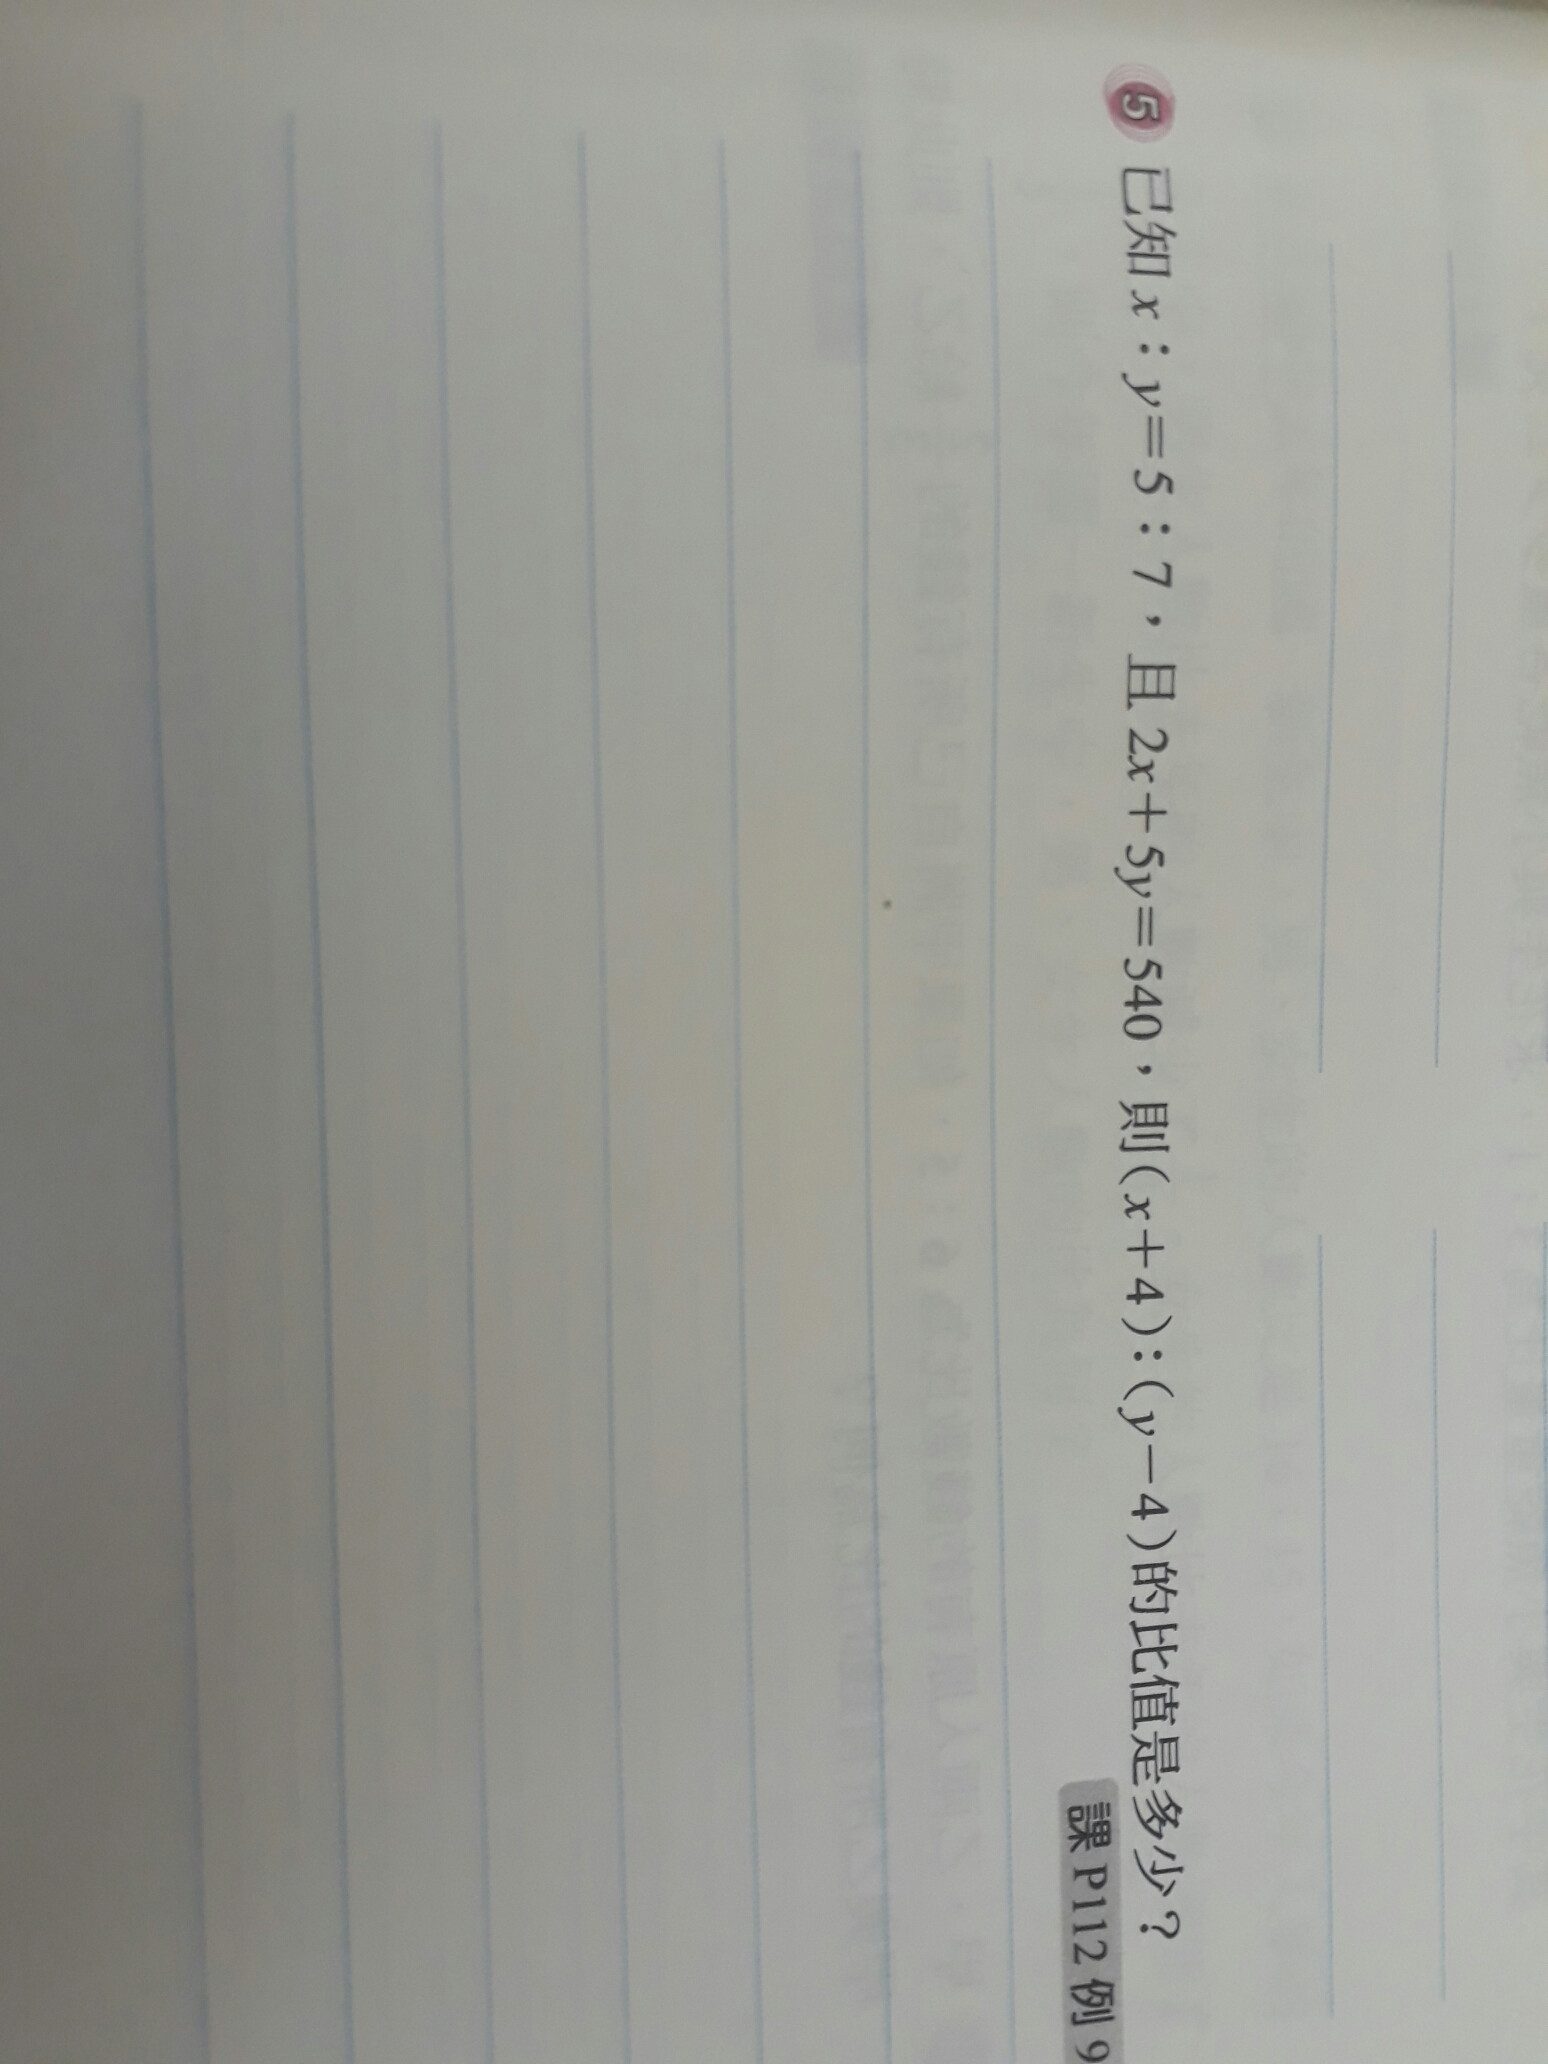 5 已知 x：y＝5：7，且 2x＋5y＝540，則(x＋4)：(y－4)的比值是多少？
課 P112 例 9